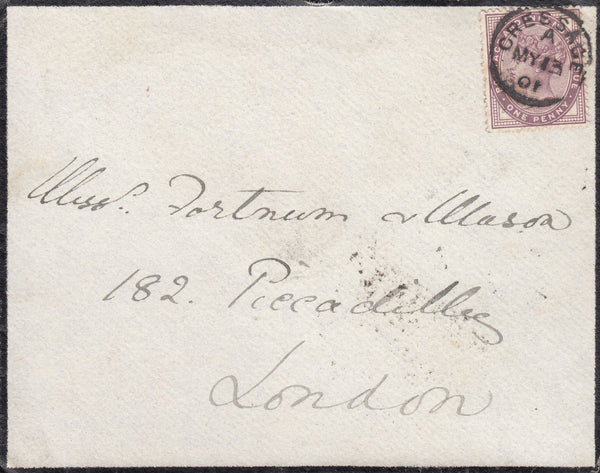 CRESSAGE
A
MY 13
01
ONE PENNY
Messs. Fortnum & Mason
182. Piccadilly
London